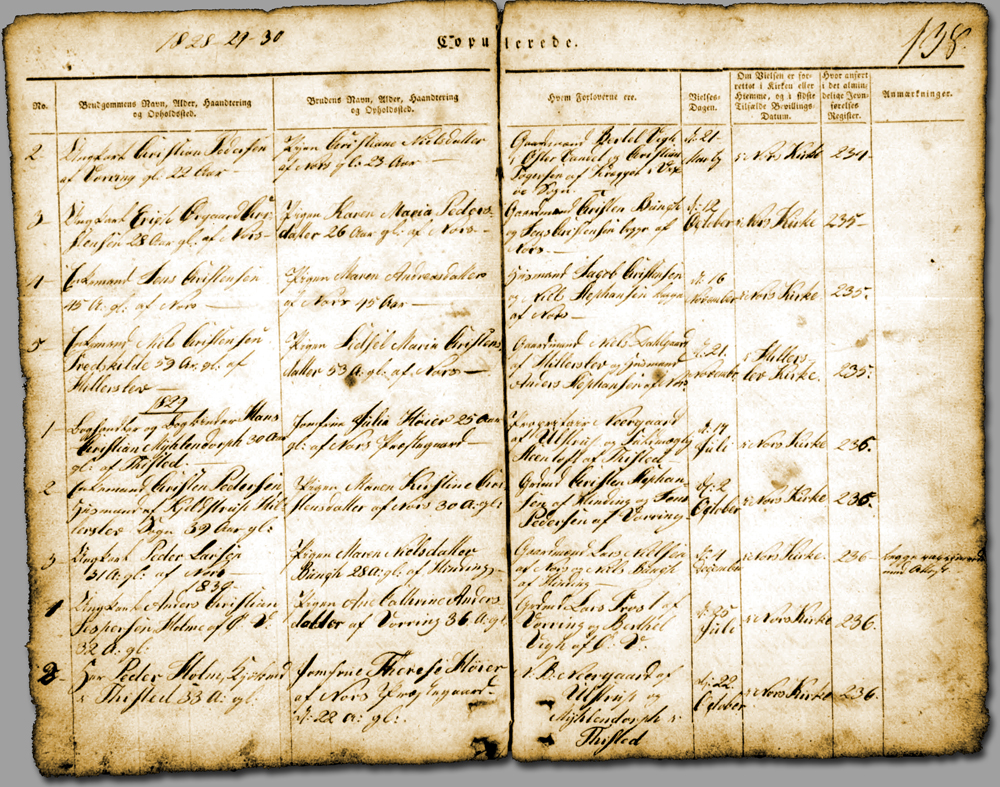 1828-29-30
Copulerede.
138.
No.
Brudgommens Navn, Alder, Haandtering
og Opholdssted.
Brudens Navn, Alder, Haandtering
og Opholdssted.
Hvem Forloverne ere.
Vielses-
Dagen.
Om Vielsen er for-
rettet i Kirken eller
Hjemme, og i sidste
Tilfælde Bevillings-
Datum.
Hvor anført
i det almin-
delige Jevn-
førelses
Register.
Anmærkninger.
2.
Ungkarl Christian Pedersen
af Vorring gl: 22 Aar
Pigen Christiane Nielsdatter
af Nors gl: 23 Aar
Gaardmænd Bertel Vigh
i Øster Vandel og Christian
af
Sogn
d: 21
i Nors Kirke
234
3
Ungkarl Erich Ørgaard Chri-
stensen 28 Aar gl: af Nors
Pigen Karen Maria Peders-
datter 26 Aar gl: af Nors
Gaardmænd Christen Büngh
og Jens Christensen begge af
Nors
d: 12
October
i Nors Kirke
235
4
Enkemand Jens Christensen
45 A: gl: af Nors
Pigen Maren Andersdatter
af Nors 45 Aar
Huusmænd Jacob Christensen
og Niels Stephansen begge
af Nors
d: 16
November
i Nors Kirke
235.
5
Enkemand Niels Christensen
53 Aar gl: af
Hillerslev
Pigen Sidsel Maria Christens-
datter 53 A: gl: af Nors
Gaardmand Niels Dahlgaard
af Hillerslev og Huusmand
Anders Stephansen af Nors
d: 21.
November
i Hillers-
lev Kirke.
235.
1829
1
og Hans
Christian Myhlendorph 30 Aar
gl: af Thisted.
Jomfrue Julia Høier 25 Aar
gl: af Nors Præstegaard
Neergaard
af Ulstrup og
af Thisted
d: 14
Juli
i Nors Kirke
236.
2
Enkemand Christen Pedersen
Huusmand af Kjelstrup Hil-
lerslev Sogn 39 Aar gl:
Pigen Maren Kirstine Chri-
stensdatter af Nors 30 A: gl:
Grdmd Christen Stephan-
sen af Hinding og Jens
Pedersen af Vorring
d: 2
October
i Nors Kirke
236.
3
Ungkarl Peder Larsen
31 A: gl: af Nors
Pigen Maren Nielsdatter
Büngh 28 A: gl: af Hinding
Gaardmænd Lars Nielsen
af Nors og Niels Büngh
af Hinding
d: 4
December
i Nors Kirke
236
1830
1
Ungkarl Anders Christian
Jespersen Holme af Ø: V:
32 A: gl:
Pigen Ane Cathrine Anders-
datter af Vorring 36 A: gl:
Grdmd Lars Frost af
Vorring og Berthel
Vigh af Ø. V.
d: 25
Juli
i Nors Kirke
236.
2
Hr Peder Holm,
i Thisted 33 A: gl:
Jomfrue Therese Høier
af Nors Præstegaard
22 A: gl:
Neergaard af
Ulstrup og
Myhlendorph i
Thisted
d: 22
October
i Nors Kirke
236.